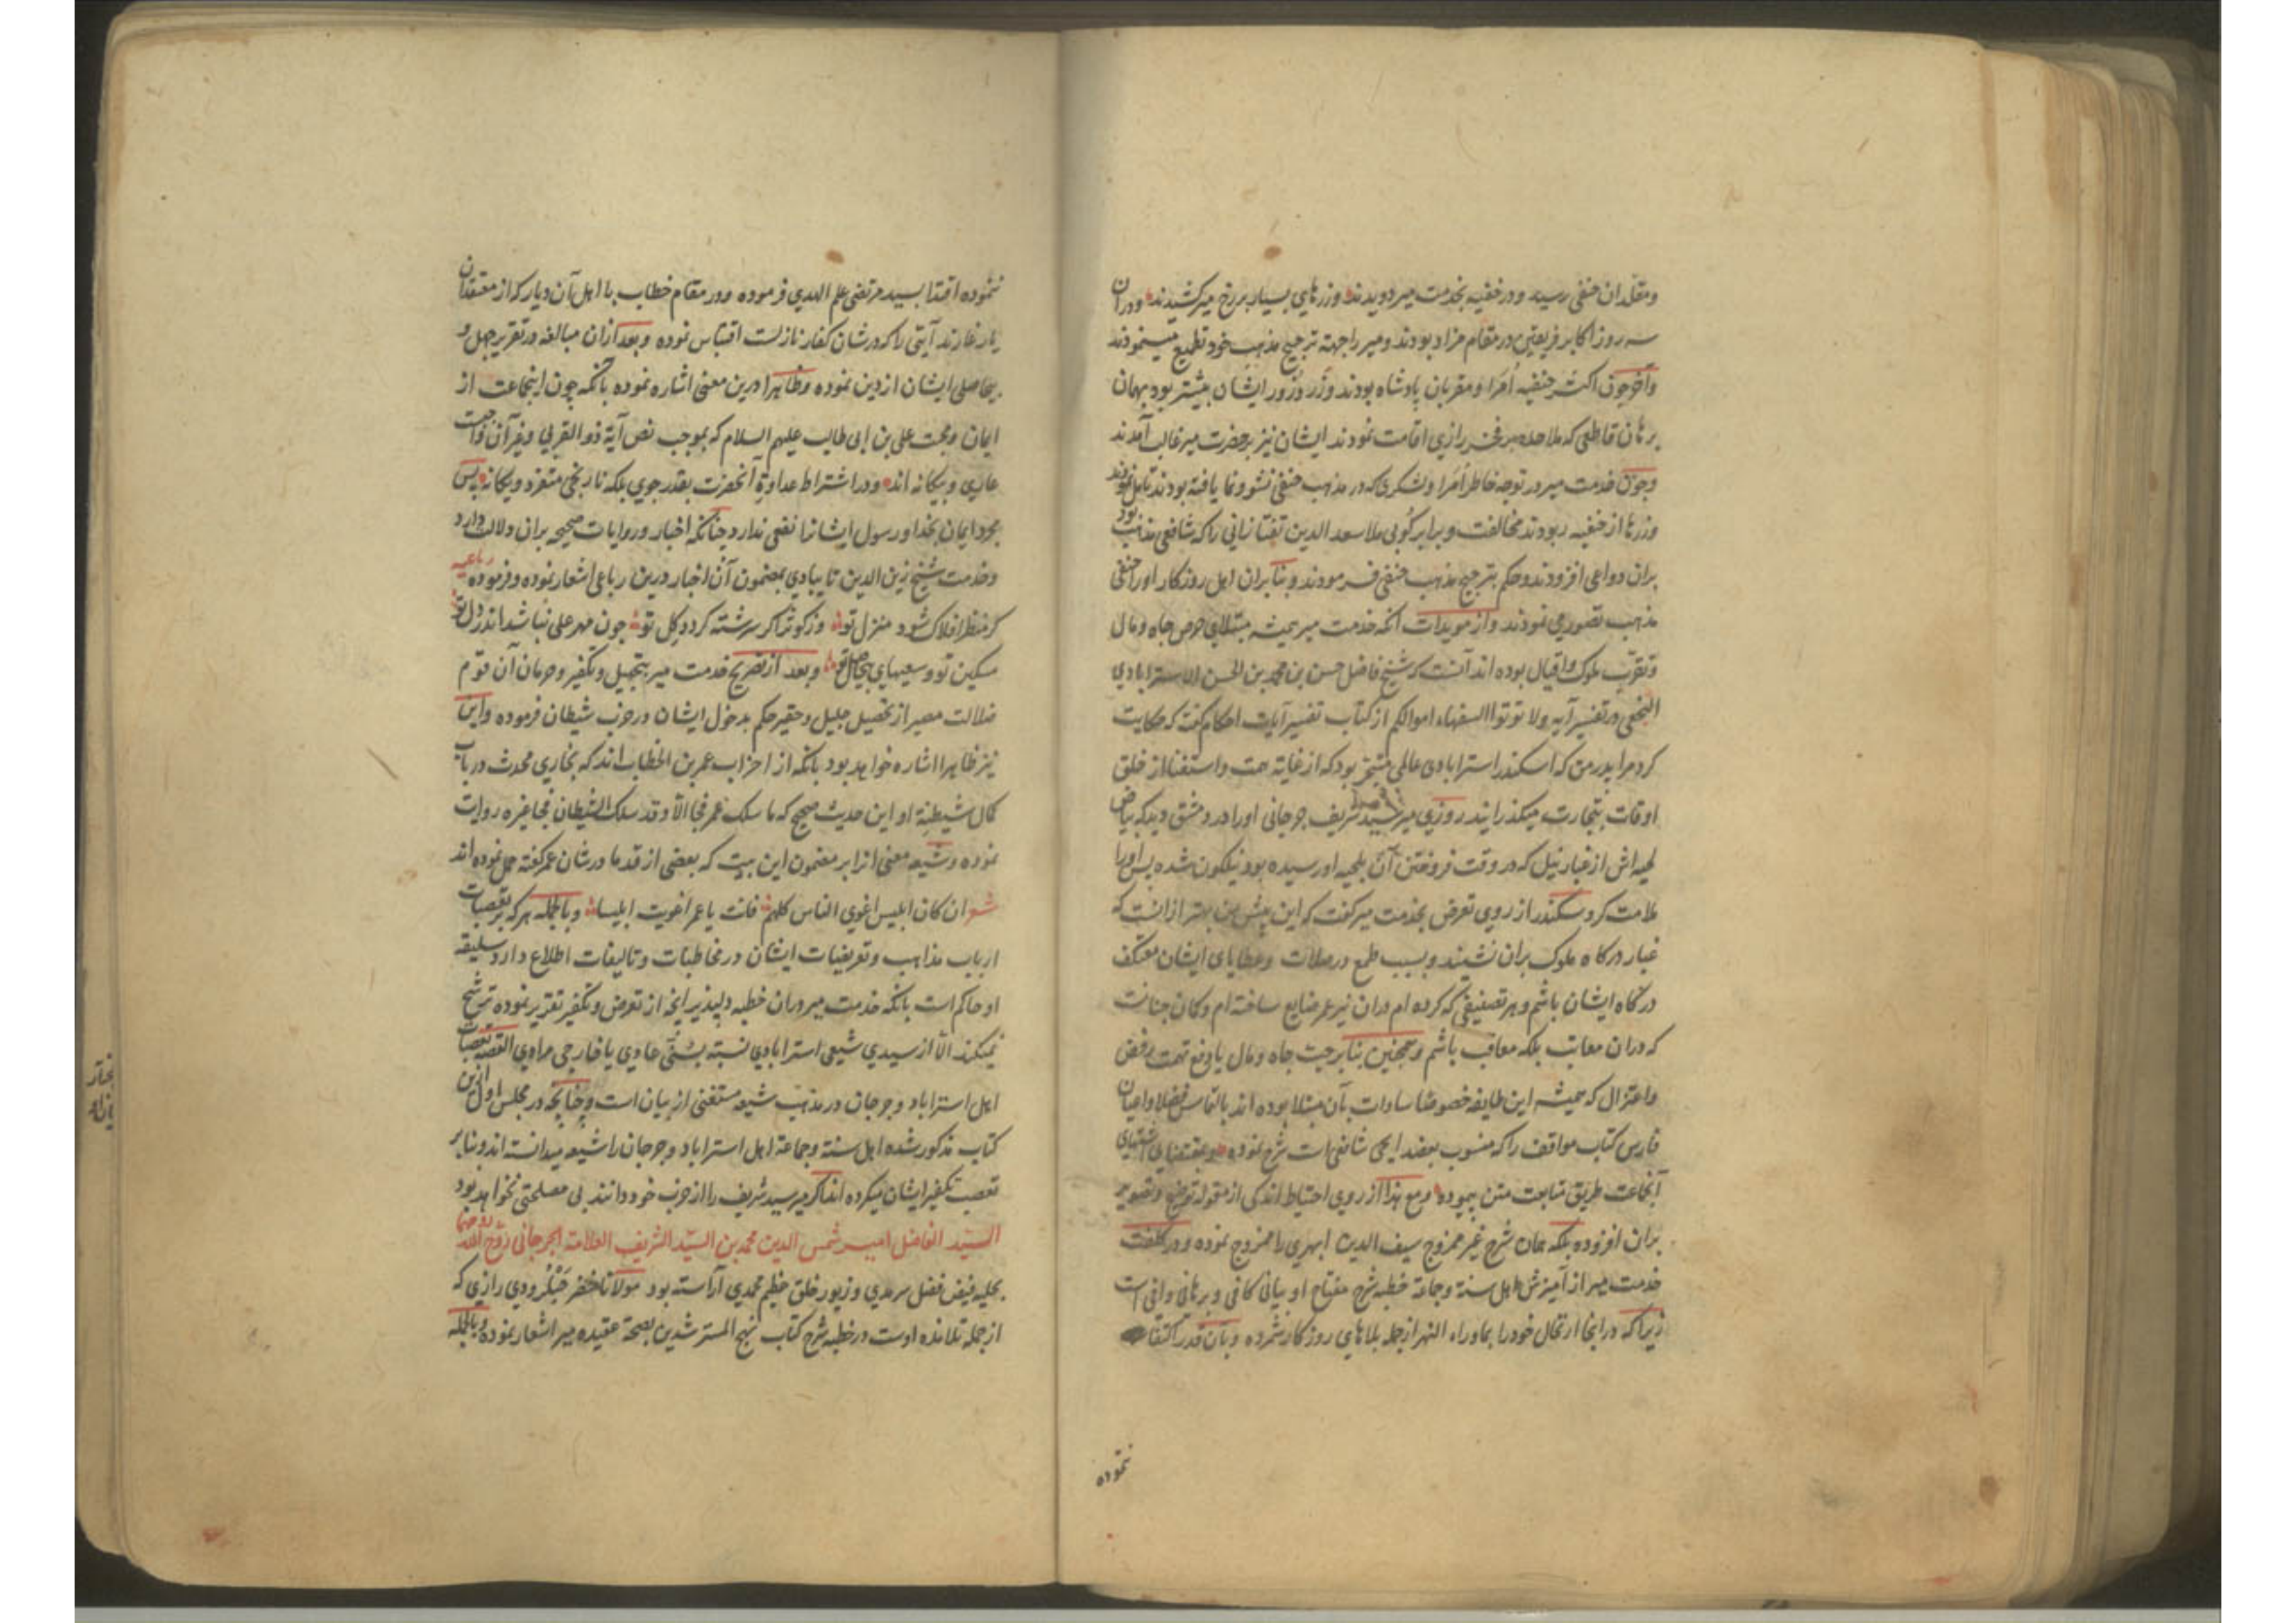 ومقلدان حنفی رسید ودر خفیه بخدمت میر دویدند وزرهای بسیار بر رخ میر کشیدند ودران
سه روز اکابر فریقین در مقام مزاد بودند ومیر را جهة ترجیح مذهب خود تطمیع مینمودند
وآخر چون اکثر حنفیه اُمَرا ومقربان پادشاه بودند وزر وزور ایشان بیشتر بود بهمان
برهان قاطعی که ملاحده بر فخر رازی اقامت نمودند ایشان نیز بر حضرت میر غالب آمدند
وچون خدمت میر در توجه خاطر اُمَرا ولشکری که در مذهب حنفی نشو ونما یافته بودند تأمل نمودند
وزرها از حنفیه ربودند مخالفت وبرابر کُوبی ملا سعد الدین تفتازانی را که شافعی مذهب بود
بران دواعی افزودند وحکم بترجیح مذهب حنفی فرمودند وبنا بران اهل روزکار او را حنفی
مذهب تصور می نمودند واز مویدات آنکه خدمت میر همیشه مبتلای حرص جاه ومال
وتقرّب ملوک واقیال بوده اند آنست که شیخ فاضل حسن بن محمد بن الحسن الاسترابادی
النجفی در تفسیر آیه ولا توتوا السفهاء اموالکم از کتاب تفسیر آیات احکام گفت که حکایت
کرد مرا پدر من که اسکندر استرابادی عالمی متبحّر بود که از غایة همت واستغنا از خلق
اوقات بتجارت میکذرانید روزی میر سید شریف جرجانی او را در دمشق دید که بیاض
لحیه اش از غبار نیل که در وقت فروختن آن بلحیه او رسیده بود نیلکون شده پس او را
ملامت کرد وسکندر از روی تعرض بخدمت میر کفت که این پیش من بهتر ازانست که
غبار درکاه ملوک بران نشیند وبسبب طمع در صلات وعطایای ایشان معتکف
درکاه ایشان باشم وهر تصنیفی که کرده ام دران نیز عمر ضایع ساخته ام وکان جنانست
که دران معاتب بلکه معاقب باشم وهمچنین بنا بر حبّ جاه ومال یا دفع تهمت رفض
واعتزال که همیشه این طایفه خصوصًا سادات بآن مبتلا بوده اند بالتماس فضلا واعیان
فارس کتاب مواقف را که منسوب بعضد ایجی شافعی است شرح نموده وبمقتضای اشتهای
آنجماعت طریق متابعت متن پیموده ومع هذا از روی احتیاط اندکی از مقوله توضیح وتصویر
بران افزوده بلکه همان شرح غیر ممزوج سیف الدین ابهری را ممزوج نموده ودر کلفت
خدمت میر از آمیزش اهل سنة وجماعة خطبه شرح مفتاح او بیانی کافی وبرهانی وافی است
زیرا که در انجا ارتحال خود را بماوراء النهر از جمله بلاهای روزکار شمرده وبآن قدر اکتفا
نموده
ننموده اقتدا بسید مرتضی علم الهدی فرموده ودر مقام خطاب با اهل آن دیار که از معتقدان
یار غارند آیتی را که در شان کفار نازلست اقتباس نموده وبعد ازان مبالغه در تقریر جهل و
بیحاصلی ایشان از دین نموده وظاهرا درین معنی اشاره نموده بآنکه چون اینجماعت از
ایمان ومحبت علی بن ابی طالب علیهم السلام که بموجب نص آیة ذو القربی وغیر آن واجبست
عاری وبیکانه اند ودر اشتراط عداوة آنحضرت بقدر جوی بلکه نارنجی متفرد ویکانه پس
مجرد ایمان بخدا ورسول ایشانرا نفعی ندارد چنانکه اخبار وروایات صحیحه بران دلالت دارد
وخدمت شیخ زین الدین تایبادی بمضمون آن اخبار درین رباعی اشعار نموده وفرموده رباعیه
کر منظر افلاک شود منزل تو وز کوثر اکر سرشته کردد کِل تو چون مهر علی نباشد اندر دل تو
مسکین تو وسعیهای بیحاصل تو وبعد از تصریح خدمت میر بتجهیل وتکفیر وحرمان آن قوم
ضلالت مصیر از تحصیل جلیل وحقیر حکم بدخول ایشان در حزب شیطان فرموده واین
نیز ظاهرا اشاره خواهد بود بآنکه از احزاب عمر بن الخطاب اند که بخاری محدث در باب
کمال شیطنة او این حدیث صحیح که ما سلک عمر فجا الّا وقد سلک الشیطان فجا غیره روایت
نموده وشیعه معنی انرا بر مضمون این بیت که بعضی از قدما در شان عمر کفته حمل نموده اند
شعر ان کان ابلیس اغوی الناس کلهم فانت یا عمر اغویت ابلیسا وبالجمله هر که بر تعصبات
ارباب مذاهب وتعریضات ایشان در مخاطبات وتالیفات اطلاع دارد سلیقه
او حاکم است بآنکه خدمت میر دران خطبه دلپذیر آنچه از تعرض وتکفیر تقریر نموده ترشح
نمیکند الّا از سیدی شیعی استرابادی نسبة بسُنّی عادی یا خارجی مرادی القصه تعصبات
اهل استراباد وجرجان در مذهب شیعه مستغنی از بیان است وچنانچه در مجلس اول ازین
کتاب مذکور شده اهل سنة وجماعة اهل استراباد وجرجان را شیعه میدانسته اند وبنابر
تعصب تکفیر ایشان میکرده اند اکر میر سید شریف را از حزب خود دانند بی مصلحتی نخواهد بود
السید الفاضل امیر شمس الدین محمد بن السیّد الشریف العلامة الجرجانی روّح الله روحهما
بحلیه فیض فضل سرمدی وزیور خلق عظیم محمدی آراسته بود مولانا خضر حَبْلُرودی رازی که
از جمله تلامذه اوست در خطبه شرح کتاب نهج المسترشدین بصحة عقیده میر اشعار نموده وبالجمله